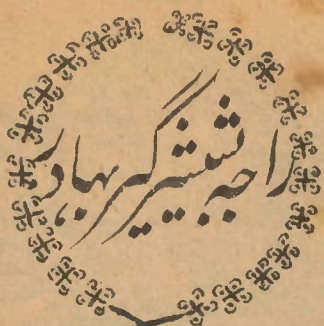 راجہ شمشیر گیر بہادر